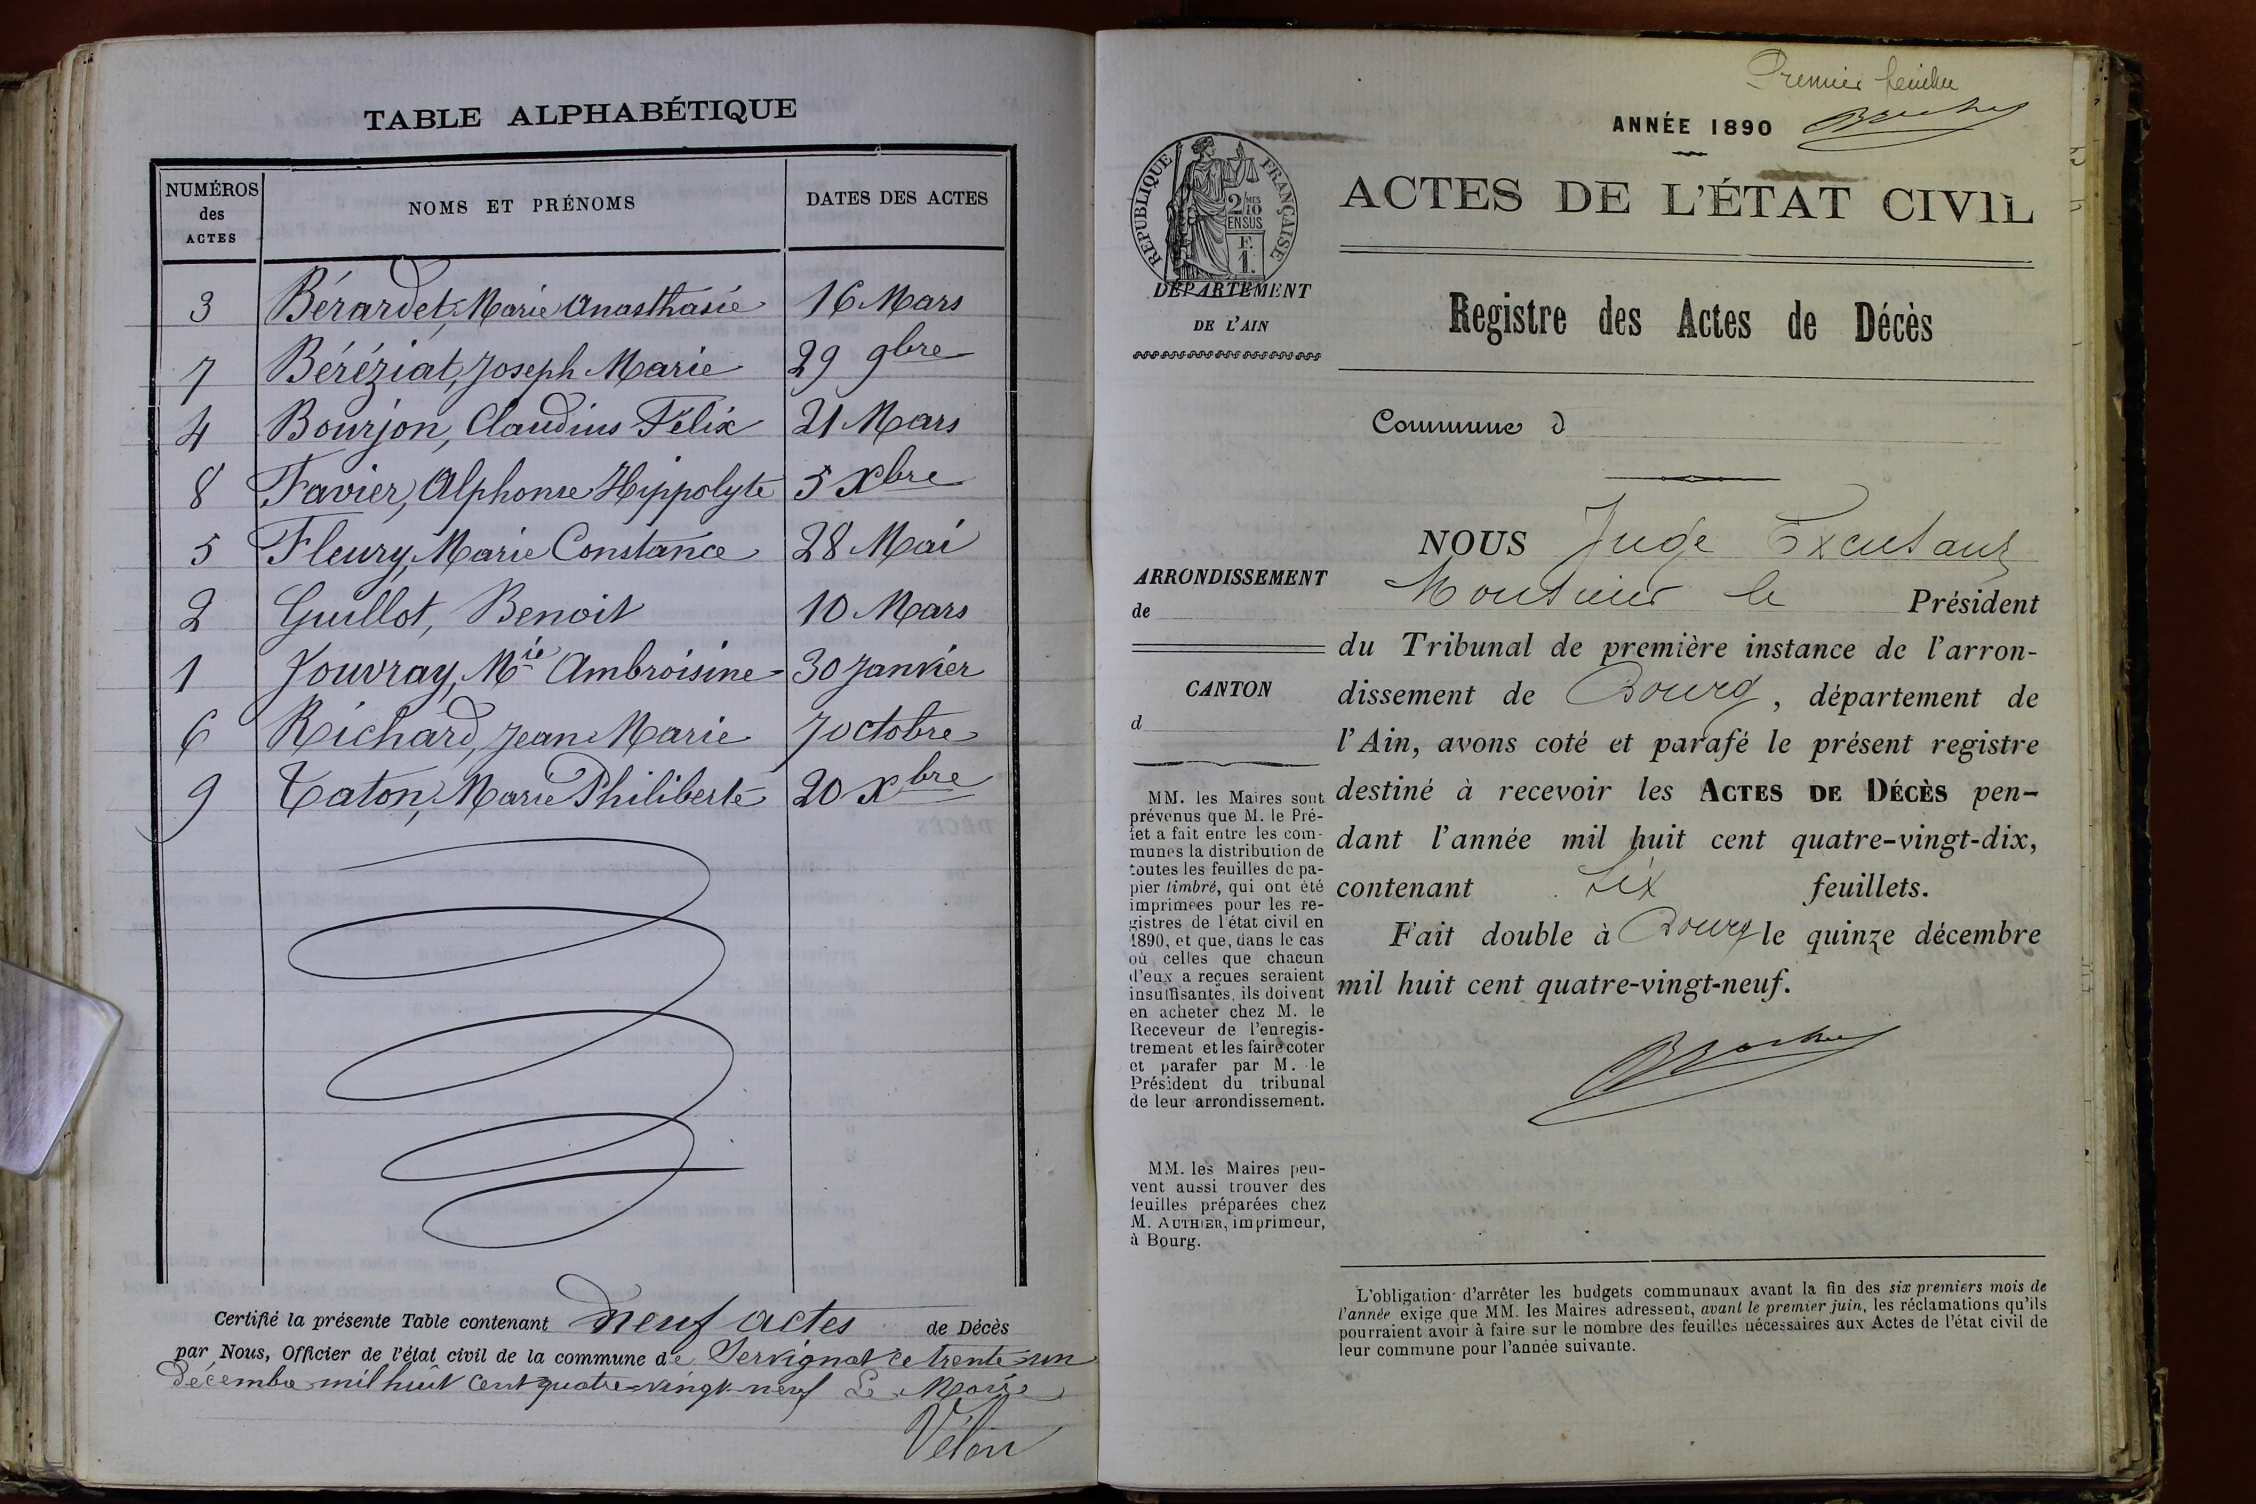 TABLE ALPHABÉTIQUE
NUMÉROS des ACTES
NOMS ET PRÉNOMS
DATES DES ACTES
3 Bérardet, Marie Anasthasie 16 Mars
7 Béréziat, Joseph Marie 29 9bre
4 Bourjon, Claudius Félix 21 Mars
8 Favier, Alphonse Hippolyte 5 Xbre
5 Fleury, Marie Constance 28 Mai
2 Guillot, Benoit 10 Mars
1 Jouvray, Mie Ambroisine 30 Janvier
6 Richard, Jean Marie 7 octobre
9 Caton, Marie Philiberte 20 Xbre
Certifié la présente Table contenant neuf actes de Décès
par Nous, Officier de l'état civil de la commune de Servignat ce trente-un
décembre mil huit cent quatre-vingt-neuf Le Maire
Vélon
Premier feuillet
ANNÉE 1890
RÉPUBLIQUE FRANÇAISE
2/10
EN SUS
F.
1.
DÉPARTEMENT
DE L'AIN
ACTES DE L'ÉTAT CIVIL
Registre des Actes de Décès
Commune d
ARRONDISSEMENT
de
CANTON
d
MM. les Maires sont
prévenus que M. le Pré-
fet a fait entre les com-
munes la distribution de
toutes les feuilles de pa-
pier timbré, qui ont été
imprimées pour les re-
gistres de l'état civil en
1890, et que, dans le cas
où celles que chacun
d'eux a reçues seraient
insuffisantes, ils doivent
en acheter chez M. le
Receveur de l'enregis-
trement et les faire coter
et parafer par M. le
Président du tribunal
de leur arrondissement.
MM. les Maires peu-
vent aussi trouver des
feuilles préparées chez
M. AUTHIER, imprimeur,
à Bourg.
NOUS Juge
Monsieur le Président
du Tribunal de première instance de l'arron-
dissement de Bourg, département de
l'Ain, avons coté et parafé le présent registre
destiné à recevoir les ACTES DE DÉCÈS pen-
dant l'année mil huit cent quatre-vingt-dix,
contenant Six feuillets.
Fait double à Bourg le quinze décembre
mil huit cent quatre-vingt-neuf.
L'obligation d'arrêter les budgets communaux avant la fin des six premiers mois de
l'année exige que MM. les Maires adressent, avant le premier juin, les réclamations qu'ils
pourraient avoir à faire sur le nombre des feuilles nécessaires aux Actes de l'état civil de
leur commune pour l'année suivante.